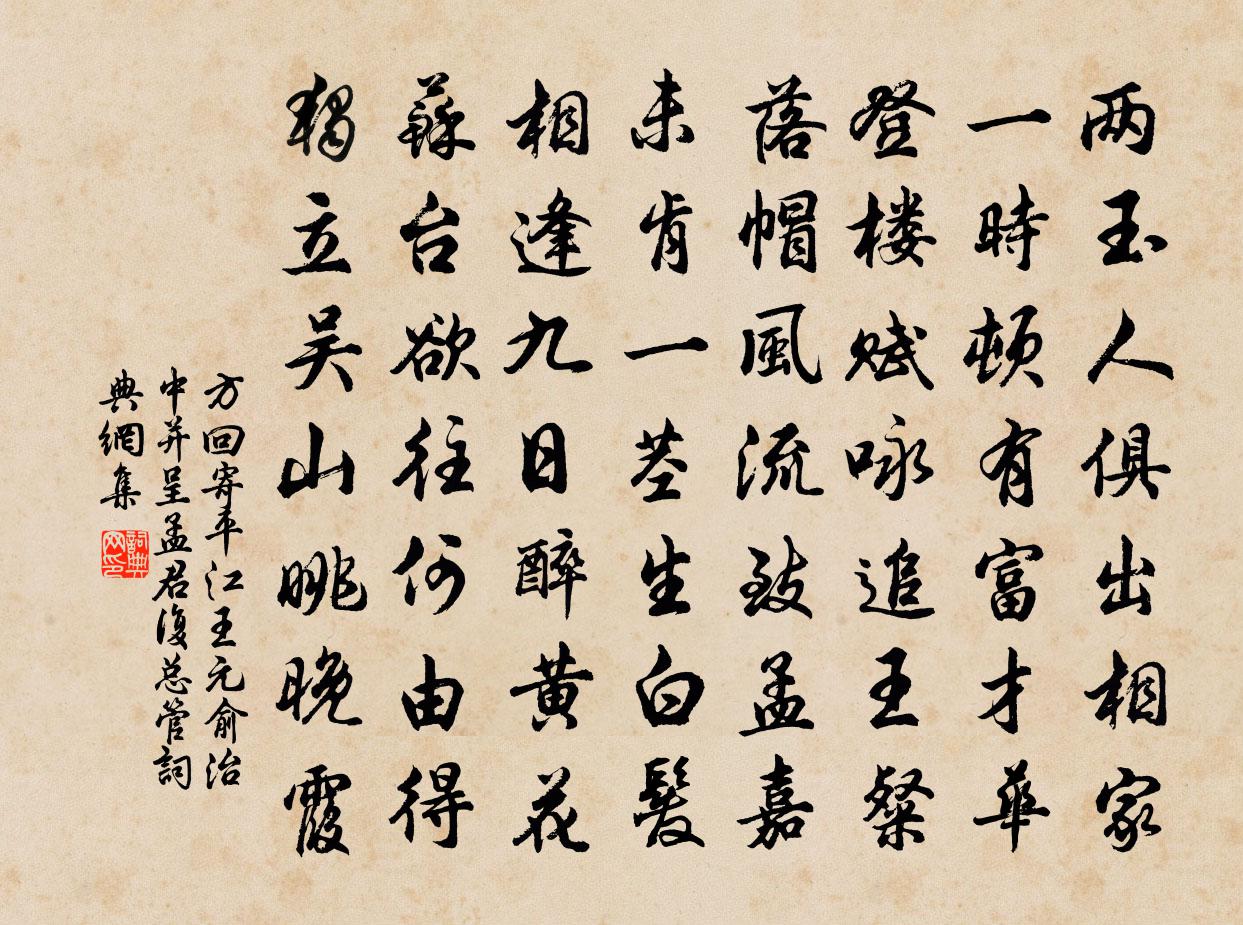 两玉人俱出相家
一時頓有富才華
登楼赋咏追王粲
落帽風流致孟嘉
未肯一莖生白髮
相逢九日醉黄花
蘇台欲往何由得
獨立吴山眺晚霞
方回寄平江王元俞治
中并呈孟君復总管詞
典網集
詞典
网印